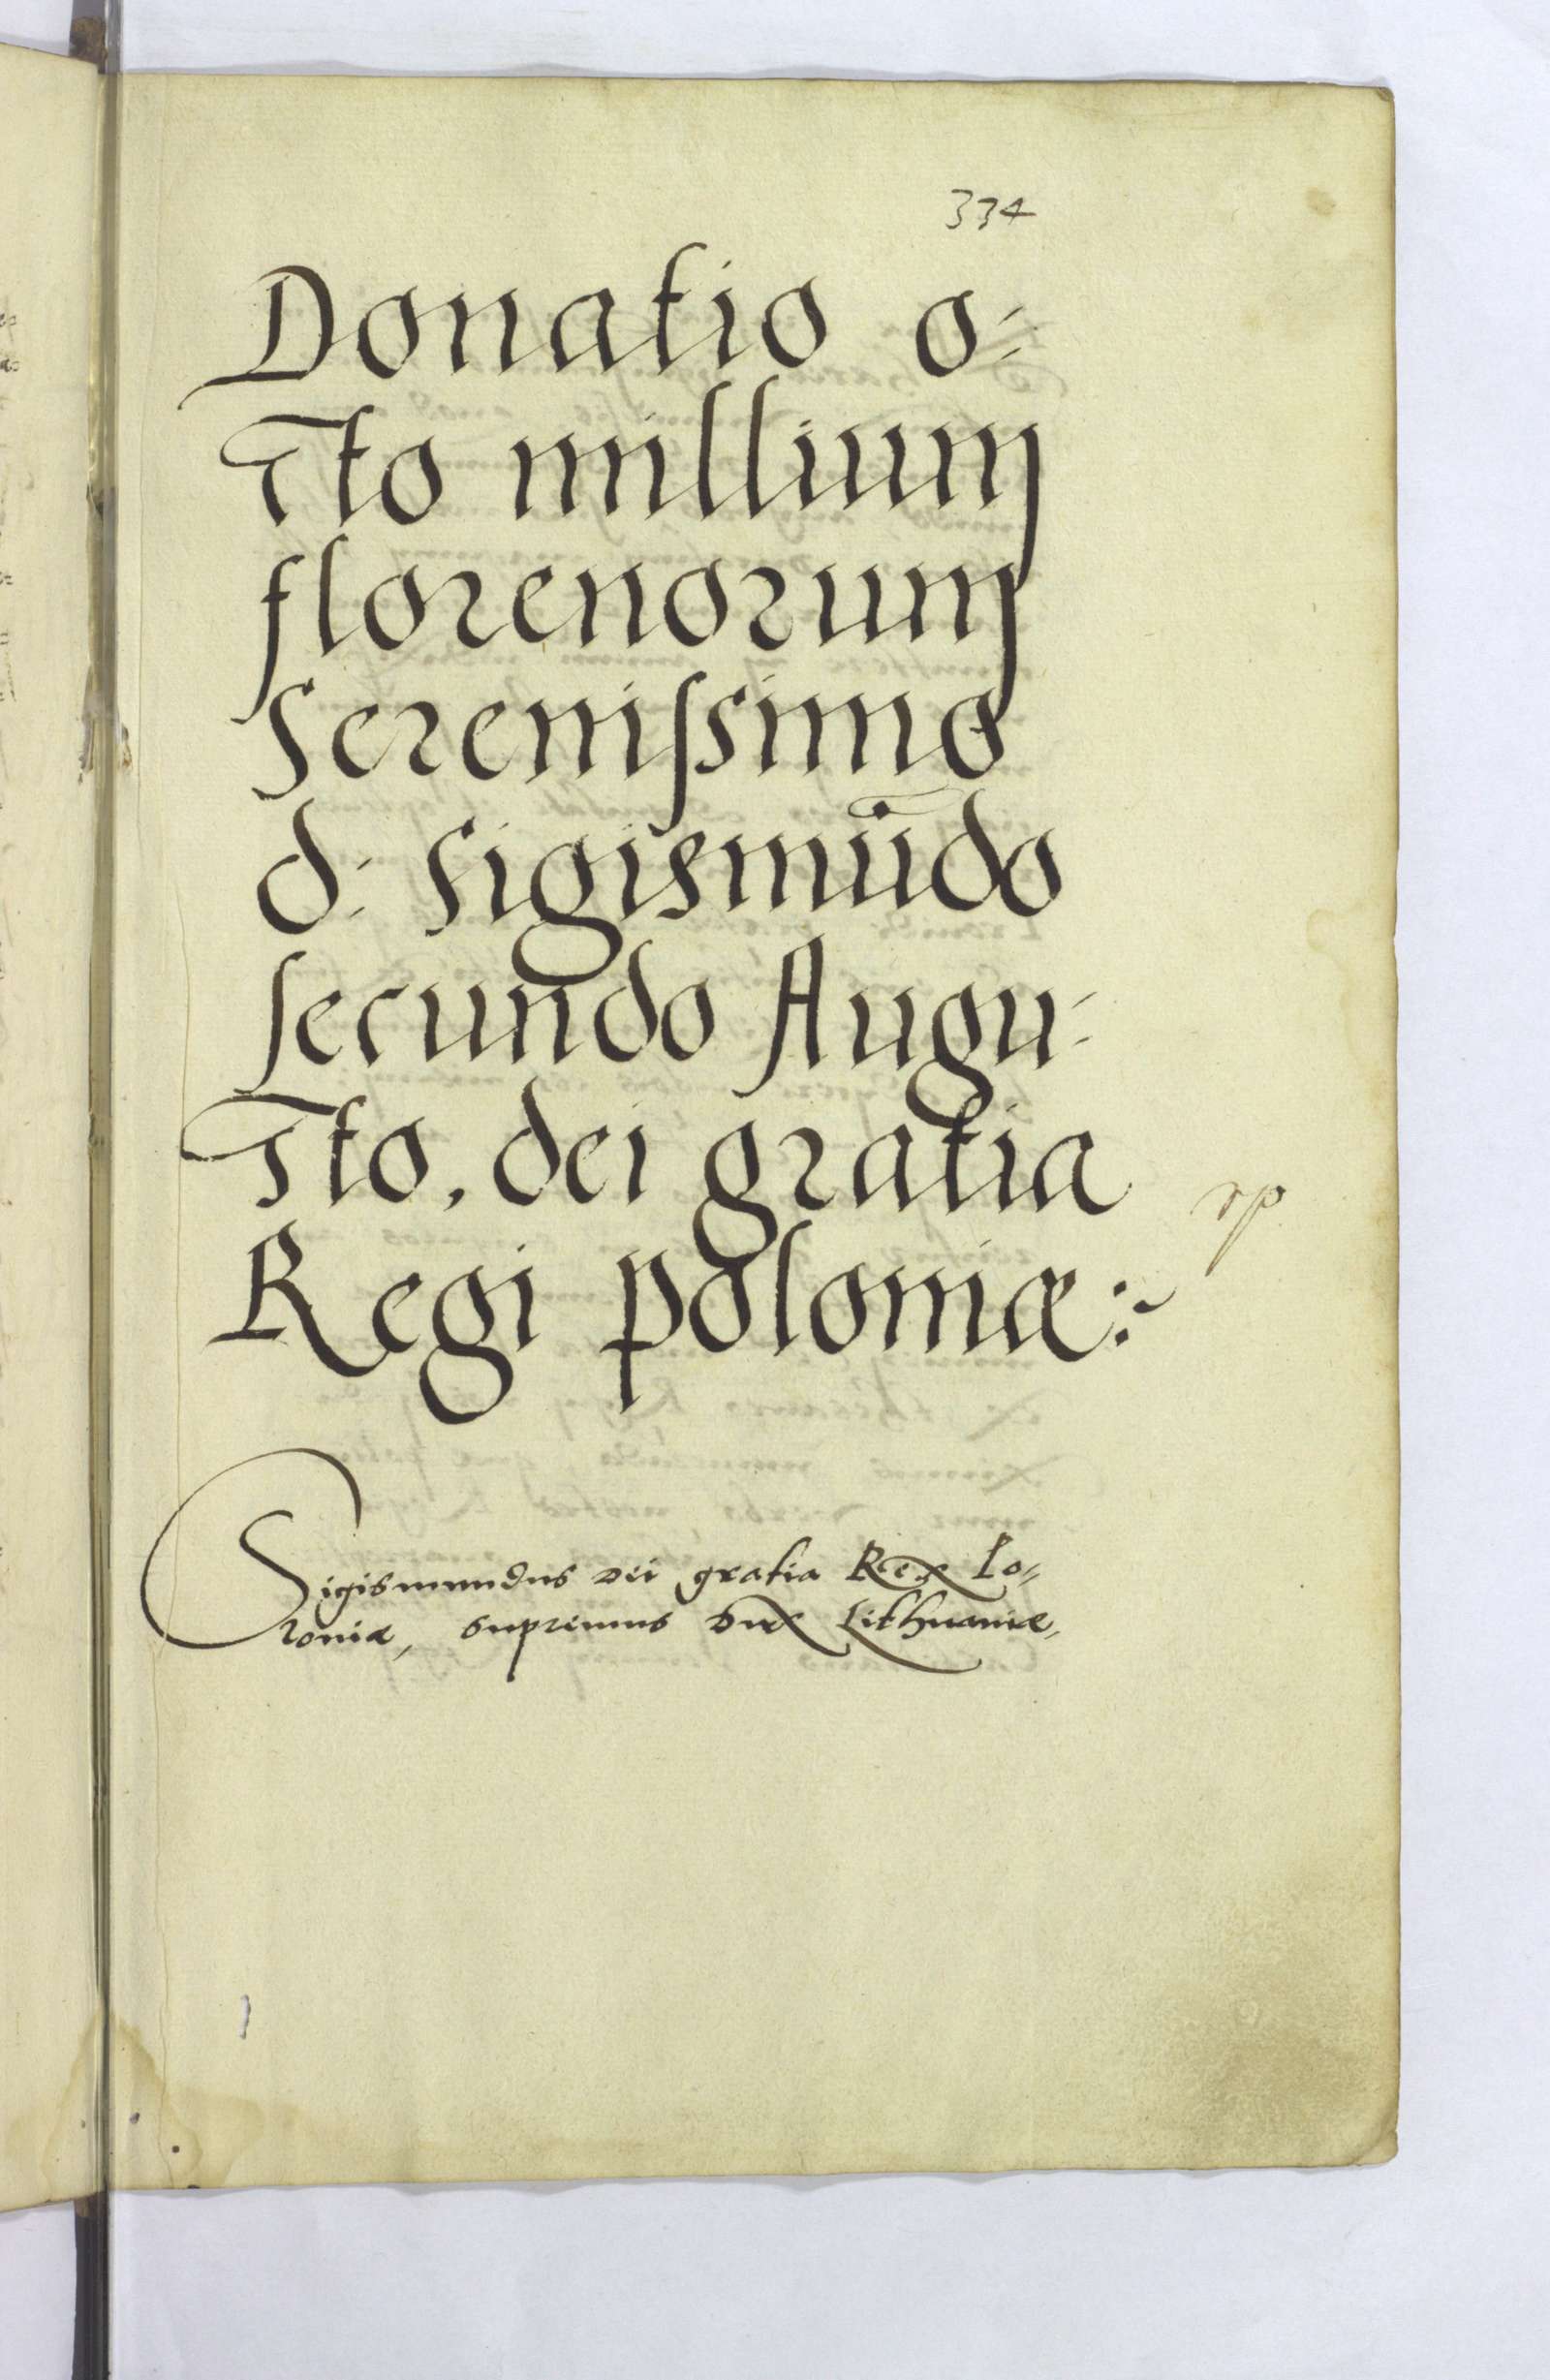 334
Donatio o:
cto millium
florenorum
Serenissimo
d: Sigismūdo
secundo Augu:
sto, dei gratia
Regi poloniæ:~
Sigismundus Dei gratia Rex Po,,
loniæ, supremus Dux Lithuaniæ,